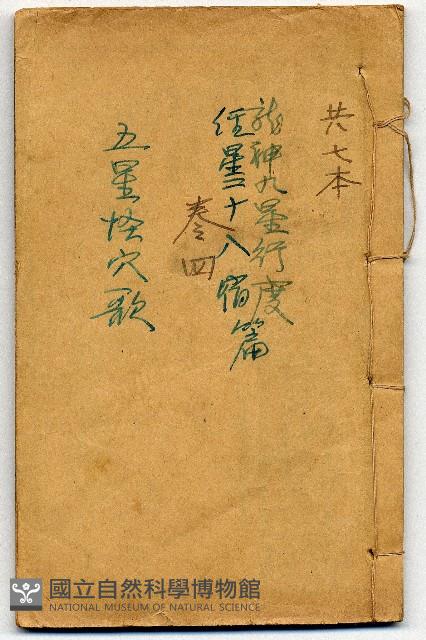 共七本
龍神九星行度
経星二十八宿篇
卷四
五星怪穴歌
國立自然科學博物館
NATIONAL MUSEUM OF NATURAL SCIENCE